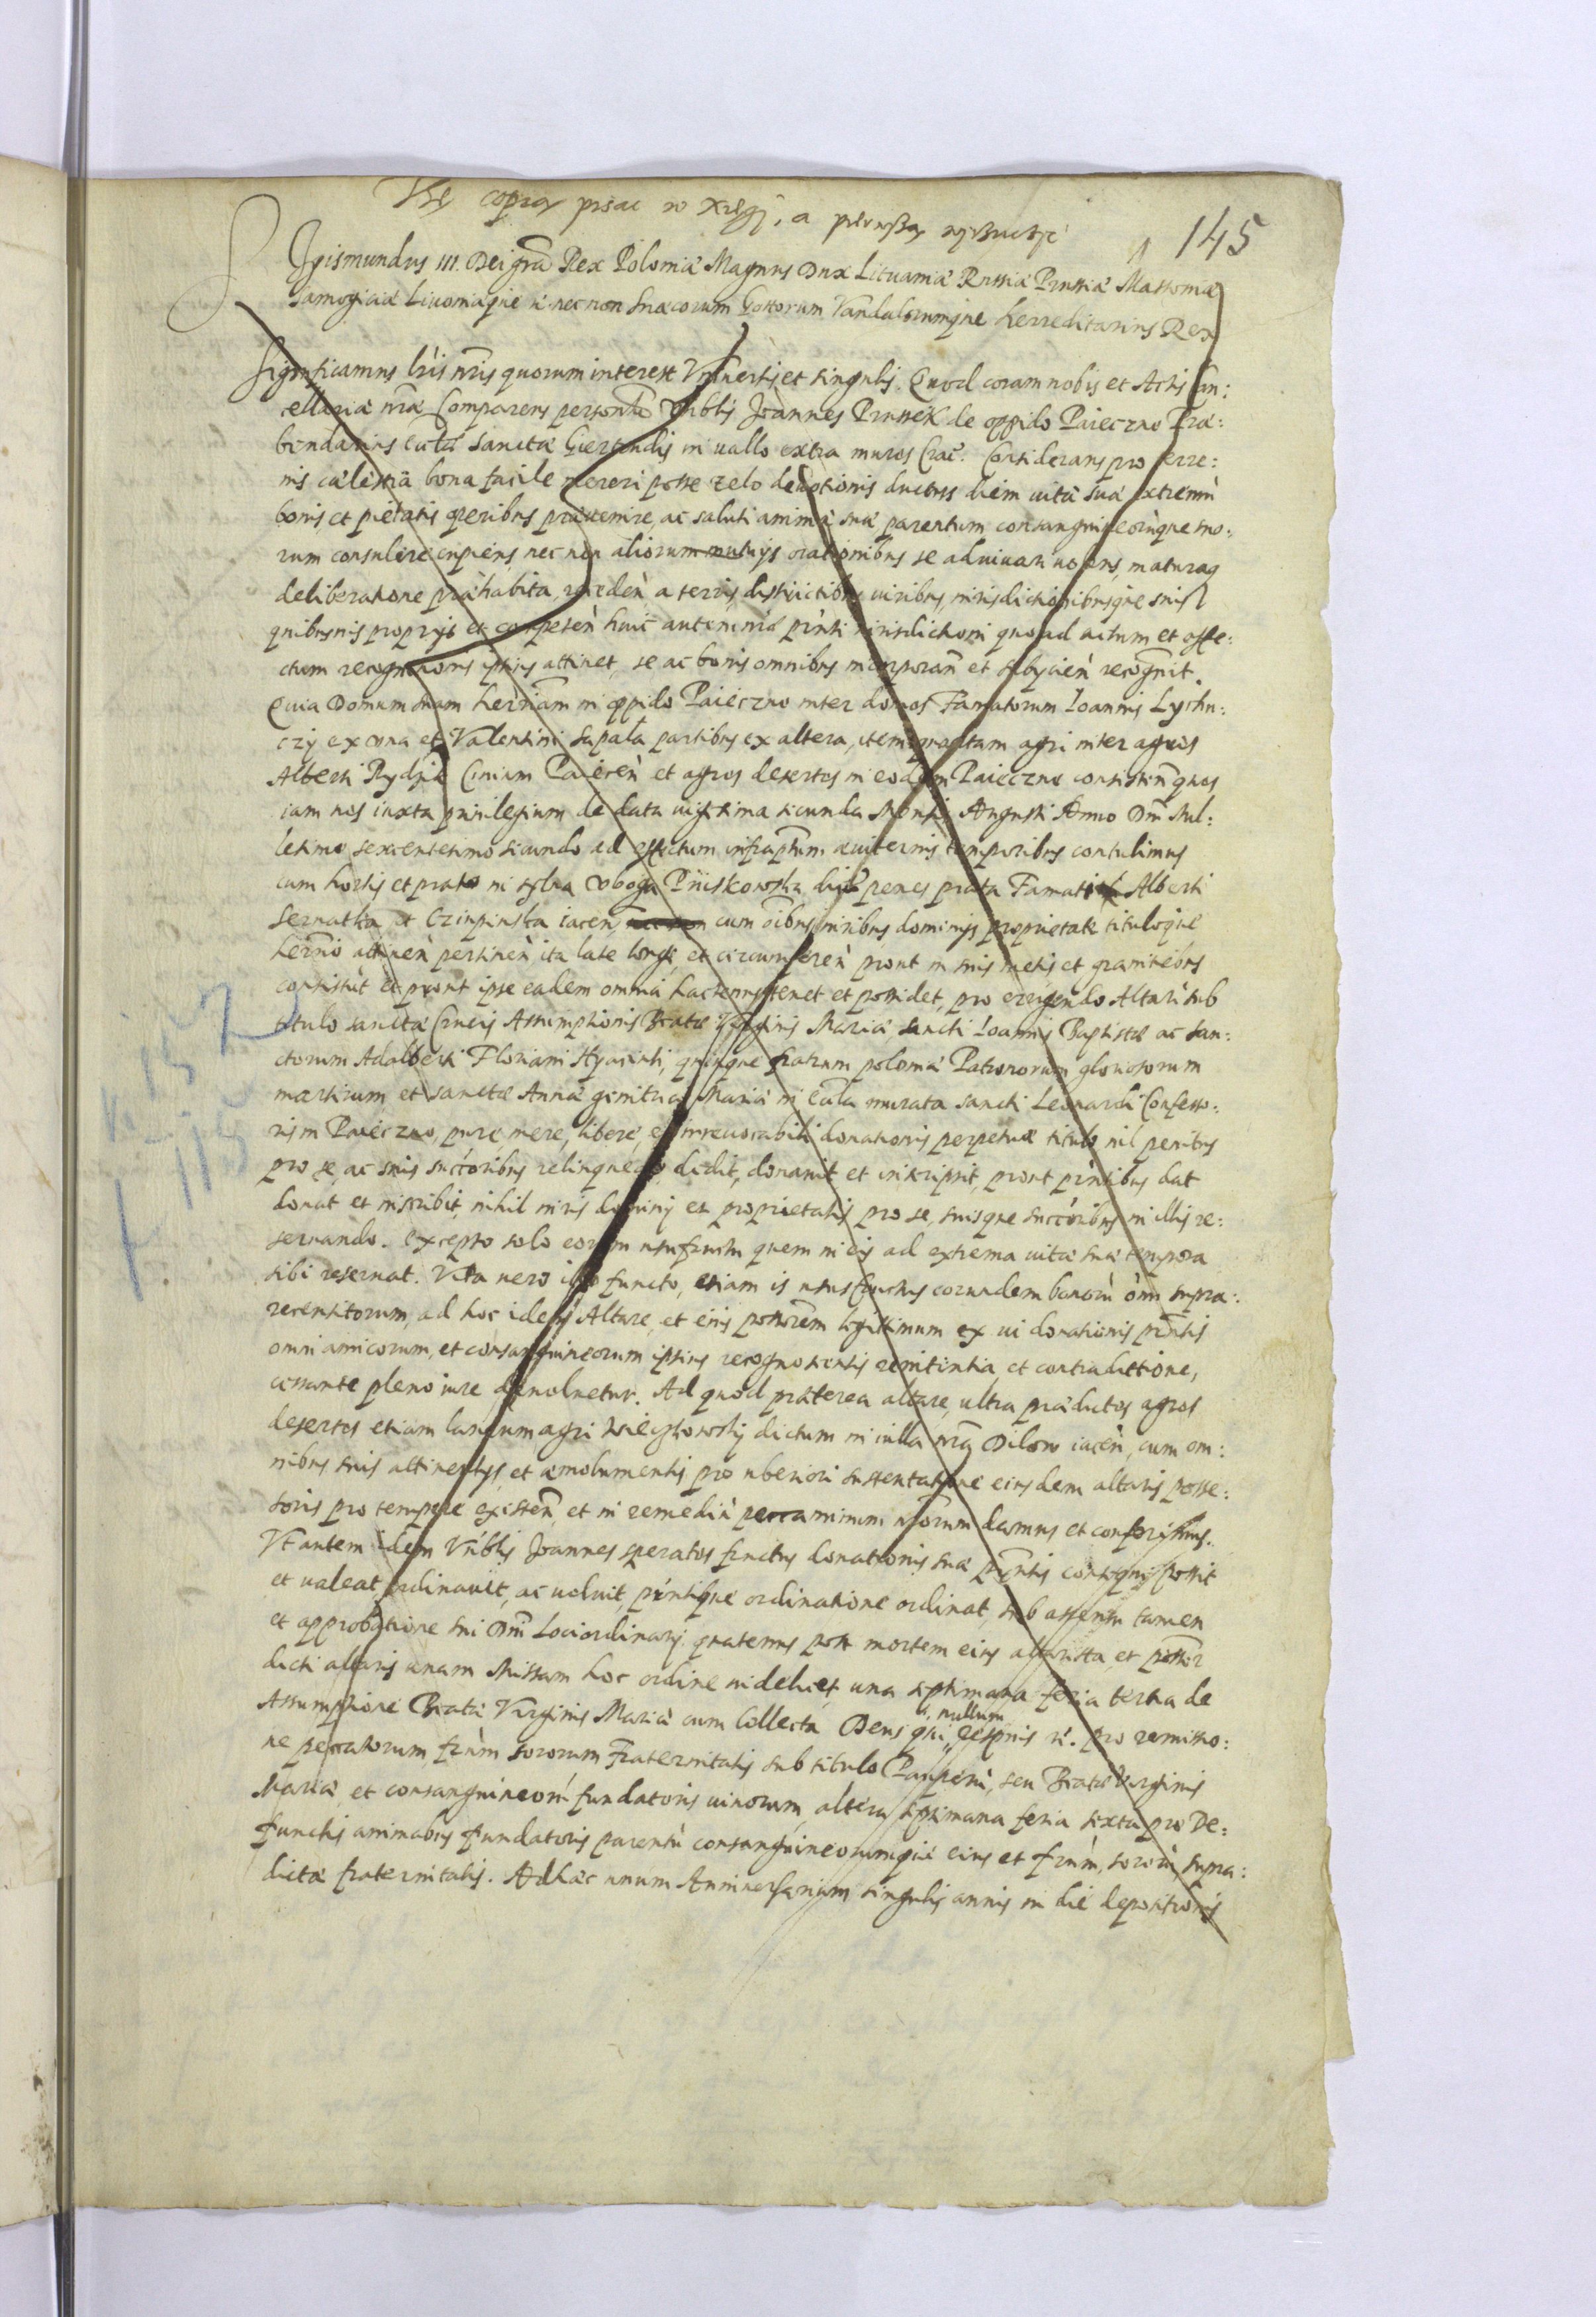 Tę copią pisac w xiegi, a pierwszą
145
Sigismundus III. Dei gra Rex Poloniæ Magnus Dux Lituaniæ Russiæ Prussiæ Massoniæ
Samogitiæ Livoniæque nec non Suæcorum Gottorum Vandalorumque herreditarius Rex
Significamus lris nris quorum interest Vniuersis et singulis. Quod coram nobis et Actis Can:
cellariæ nræ Comparens personlr Vnblis Joannes Prussek de oppido Paieczno Præ:
bendarius Ecclæ Sanctæ Giertrudis in uallo extra muros Crac. Considerans pro terre:
nis cælestia bona facile mereri posse zelo deuotionis ductus diem uitæ suæ extremu
bonis et pietatis operibus præuenire, ac saluti animæ suæ parentum consanguineorùque suo:
rum consulere cupiens nec non aliorum mutuis orationibus se adiuuari uolens, maturaq
deliberatione præhabita, receden a terris, districtibus, iuribus, iurisdictionibusque suis
quibusuis proprijs et competen huic autem nræ pnti iurisdictioni quo ad actum et effe:
ctum recognitionis ipsius attinet, se ac bonis omnibus incorporan et subijcien recognit.
Quia Domum suam herditam in oppido Paieczno inter domos Famatorum Ioannis Lychu:
czy ex una et Valentini Sapała partibus ex altera, item quartam agri inter agros
Alberti Rydzik Ciuium Paiecen et agros desertos in eodem Paieczno consisten quos
iam nos iuxta priuilegium de data uigesima secunda Mensis Augusti Anno Dni Mil:
lesimo sexcentesimo secundo ad effectum infraptum æuiternis temporibus contulimus
cum hortis et prato in sylua Vboga Priiskowska dicto penes prata Famati Alberti
Sernatka et Czirpinska iacen, cum oibus iuribus dominijs proprietate tituloque
herdrio attinen pertinen ita late longe, et circumferen prout in suis metis et granitiebus
consistut et prout ipse eadem omnia hactenus tenet et possidet, pro erigendo Altari sub
titulo sanctæ Crucis Assumptionis Beatæ Virginis Mariæ, Sancti Ioannis Baptistæ ac San:
ctorum Adalberti Floriani Hyacinti, quinque fratrum poloniæ Patronorum gloriosorum
martirum, et Sanctæ Annæ genitricis Mariæ in Eccla murata Sancti Leonardi Confesso:
ris in Paieczno, pure, mere, libere, et irreuocabili donationis perpetuæ titulo nil penitus
pro se, ac suis succoribus relinquedo dedit, donauit et inscripsit, prout pntibus dat
donat et inscribit, nihil iuris dominij et proprietatis pro se, suisque succoribus in illis re:
seruando. excepto solo eorum usufructu quem in eis ad extrema uitæ suæ tempora
sibi reseruat. Vita uero ipso functo, etiam is ususfructus eorundem bonorù oim supra:
recensitorum, ad hoc idem Altare, et eius possorem legittimum ex ui donationis pntis
omni amicorum, et consanguineorum ipsius recognoscentis renitentia, et contradictione,
cessante pleno iure deuoluetur. Ad quod præterea altare, ultra prædictos agros
desertos etiam laneum agri Wieczkowsky dictum in uilla nra Dilow iacen, cum om:
nibus suis attinentijs, et æmolumentis pro uberiori sustentatione eiusdem altaris posse:
soris pro tempore existen, et in remediù peccaminum nrorum damus et conferimus.
Vt autem idem Vnblis Joannes speratos fructus donationis suæ pntis consequi possit
et ualeat, ordinauit, ac uoluit, pntique ordinatione ordinat, sub assensu tamen
et approbatione sui Dni Lociordinarij. quatenus post mortem eius altarista, et possor
dicti altaris unam Missam hoc ordine uidelicet una septimana feria tertia de
Assumptione Beatæ Virginis Mariæ cum Collecta Deus qui nullum respuis . pro remissio:
ne peccatorum, frum sororum Fraternitatis sub titulo Pauperu, seu Beatæ Virginis
Mariæ, et consanguineorù fundatoris uiuorum, altera septimana feria sexta pro De:
functis animabus fundatoris parentù consanguineorumque eius et frum, sororù supra:
dictæ fraternitatis. Ad hæc unum Anniuersarium singulis annis in die depositionis